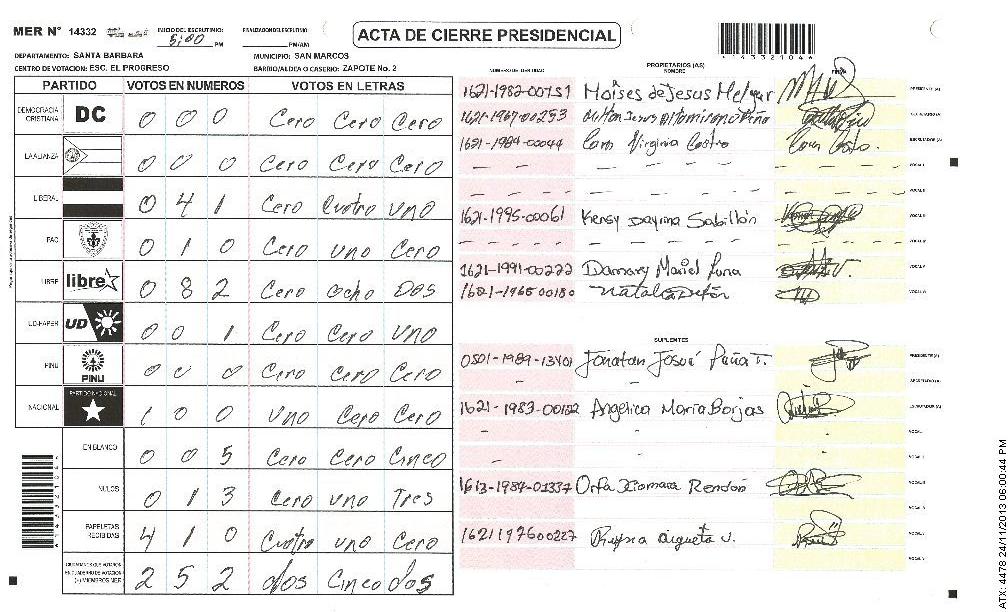 MER N° 14332 INICIO DE ESCRUTINIO: 5:00 PM FINALIZACION DE ESCRUTINIO: PM/AM
ACTA DE CIERRE PRESIDENCIAL
DEPARTAMENTO: SANTA BARBARA MUNICIPIO: SAN MARCOS
CENTRO DE VOTACION: ESC. EL PROGRESO BARRIO/ALDEA O CASERIO: ZAPOTE No. 2
PARTIDO VOTOS EN NUMEROS VOTOS EN LETRAS
DEMOCRACIA CRISTIANA DC 0 0 0 Cero Cero Cero
LA ALIANZA 0 0 0 Cero Cero Cero
LIBERAL 0 4 1 Cero Cuatro uno
PAC 0 1 0 Cero uno Cero
LIBRE libre 0 8 2 Cero ocho Dos
UD-FAPER UD 0 0 1 Cero Cero uno
PINU PINU 0 0 0 Cero Cero Cero
NACIONAL PARTIDO NACIONAL 1 0 0 uno Cero Cero
EN BLANCO 0 0 5 Cero Cero Cinco
NULOS 0 1 3 Cero uno Tres
PAPELETAS RECIBIDAS 4 1 0 Cuatro uno Cero
2 5 2 dos Cinco dos
NUMERO DE IDENTIDAD PROPIETARIOS (AS) NOMBRE FIRMA
1621-1982-00151 Moises de Jesus Melgar PRESIDENTE (A)
1621-1967-00253 SECRETARIO (A)
1621-1984-00044 Virginia Castro ESCRUTADOR (A)
VOCAL I
VOCAL II
1621-1995-00061 Kensy Dayma Sabillón
1621-1991-00222 Damary Mariel
1621-1965-00180
SUPLENTES
0501-1989-13401 Jonatan Josué PRESIDENTE (A)
SECRETARIO (A)
1621-1983-00122 Angelica Maria Borjas ESCRUTADOR (A)
1613-1984-01337 Orfa Xiomara Rendon
1621197600227
ATX: 4478 24/11/2013 06:00:44 PM